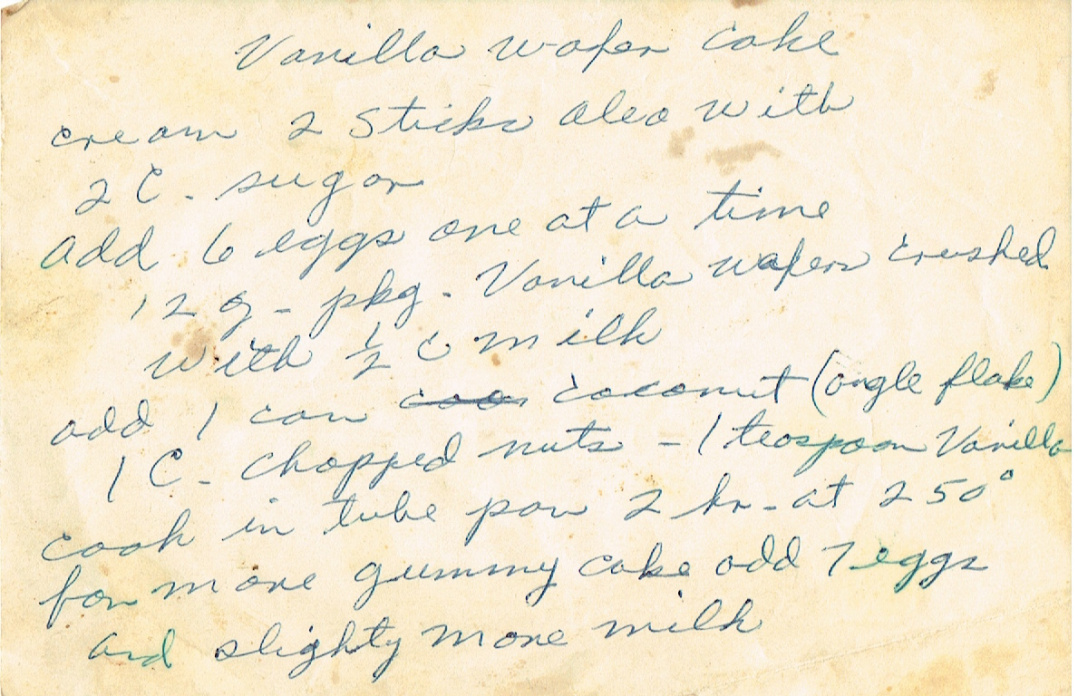 Vanilla wafer cake
cream 2 sticks oleo with
2 C. sugar
add 6 eggs one at a time
12 oz - pkg. Vanilla wafers crushed
with ½ c milk
add 1 can coconut (angle flake)
1 C. chopped nuts - 1 teaspoon Vanilla
cook in tube pan 2 hr. at 250°
for more gummy cake add 7 eggs
and slighty more milk